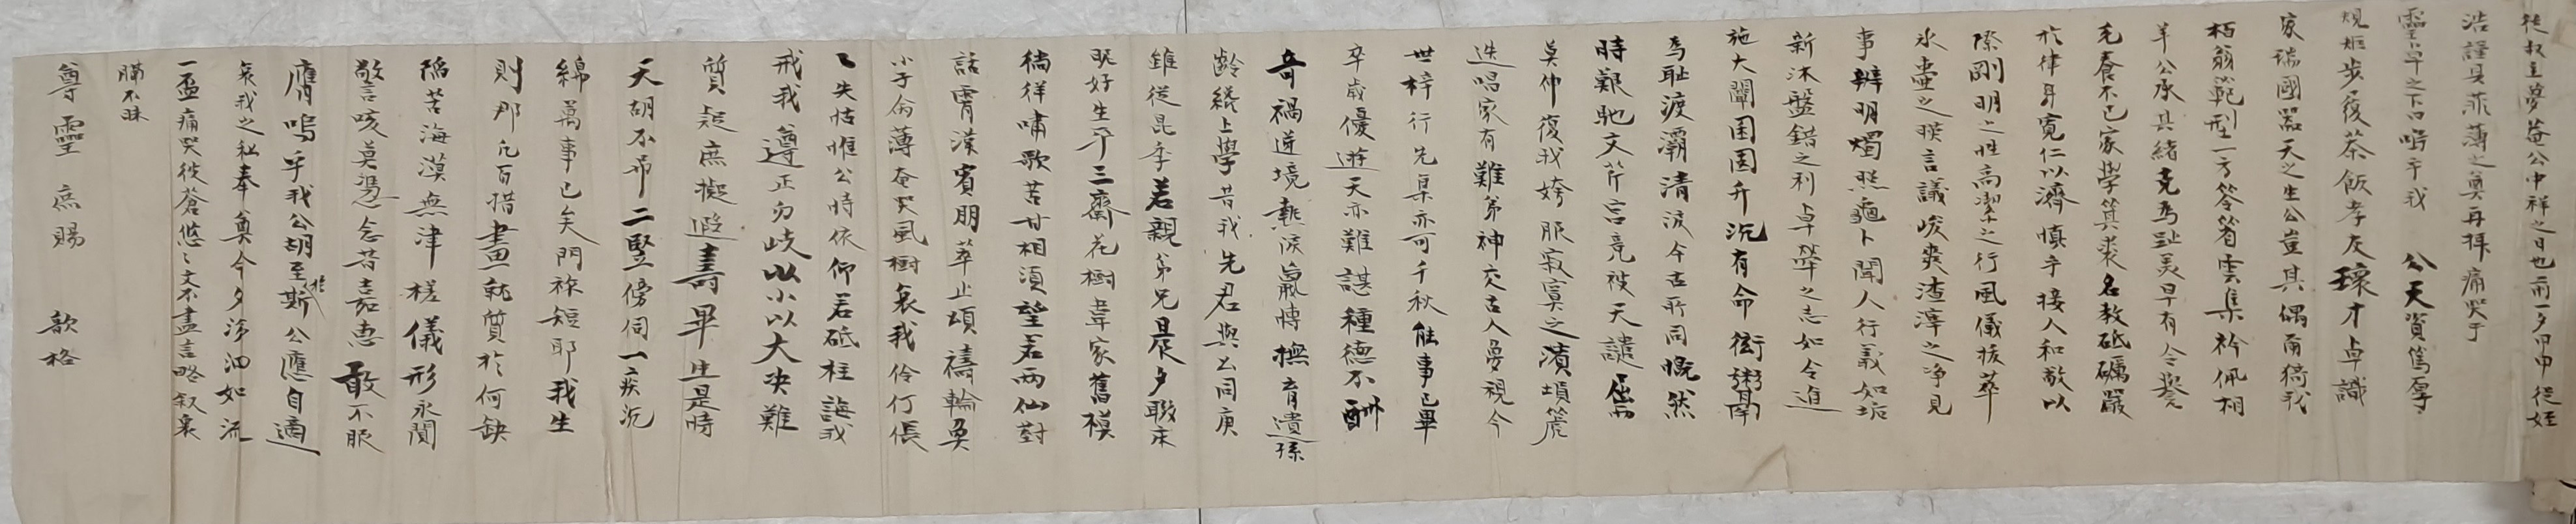 從叔主夢菴公中祥之日也前一夕甲申從姪
浩謹具菲薄之奠再拜痛哭于
靈卓之下曰嗚乎我 公天資篤厚
規矩步履茶飯孝友瓌才卓識
家瑞國器天之生公豈其偶爾猗我
栢翁範型一方答筲雲集衿佩相
羊公承其緖克爲趾美早有令譽
充養不已家學箕裘名敎砥礪嚴
於律身寬仁以濟愼乎接人和敬以
際剛明之性高潔之行風儀拔萃
氷壺之瑩言議峻爽渣滓之净見
事辨明燭照龜卜聞人行義如垢
新沐盤錯之利卓犖之志如令進
施大闡困囷升沉有命衒鬻
爲耻渡灞淸波今古所同慨然
時艱馳文斥言竟被天譴
莫仲復我姱服寂寞之濱塤篪
迭唱家有難弟神交古人夢視今
世梓行先集亦可千秋能事已畢
卒歲優遊天亦難諶種德不酬
奇禍逆境熱淚氣慱撫育遺孫
齡纔上學昔我先君與公同庚
雖從昆季若親弟兄晨夕聯床
眤好生平三齋花樹韋家舊模
徜徉嘯歌苦甘相湏望若兩仙對
話霄漢賓朋萃止頌禱輪奐
小子命薄奄哭風樹哀我伶仃倀
〻失怙惟公時依仰若砥柱誨我
戒我遵正勿歧以小以大决難
質疑庶擬遐壽畢生是時
天胡不弔二竪傍伺一疾沉
綿萬事已矣門祚短耶我生
則那凡百措畫就質於何缺
陷苦海漠無津槎儀形永閟
謦咳莫憑念昔嘉惠敢不服
膺嗚乎我公胡至於斯公應自適
哀我之私奉奠今夕涕泗如流
一盃痛哭彼蒼悠〻文不盡言略叙衷
膓不昧
尊靈庶賜 歆格